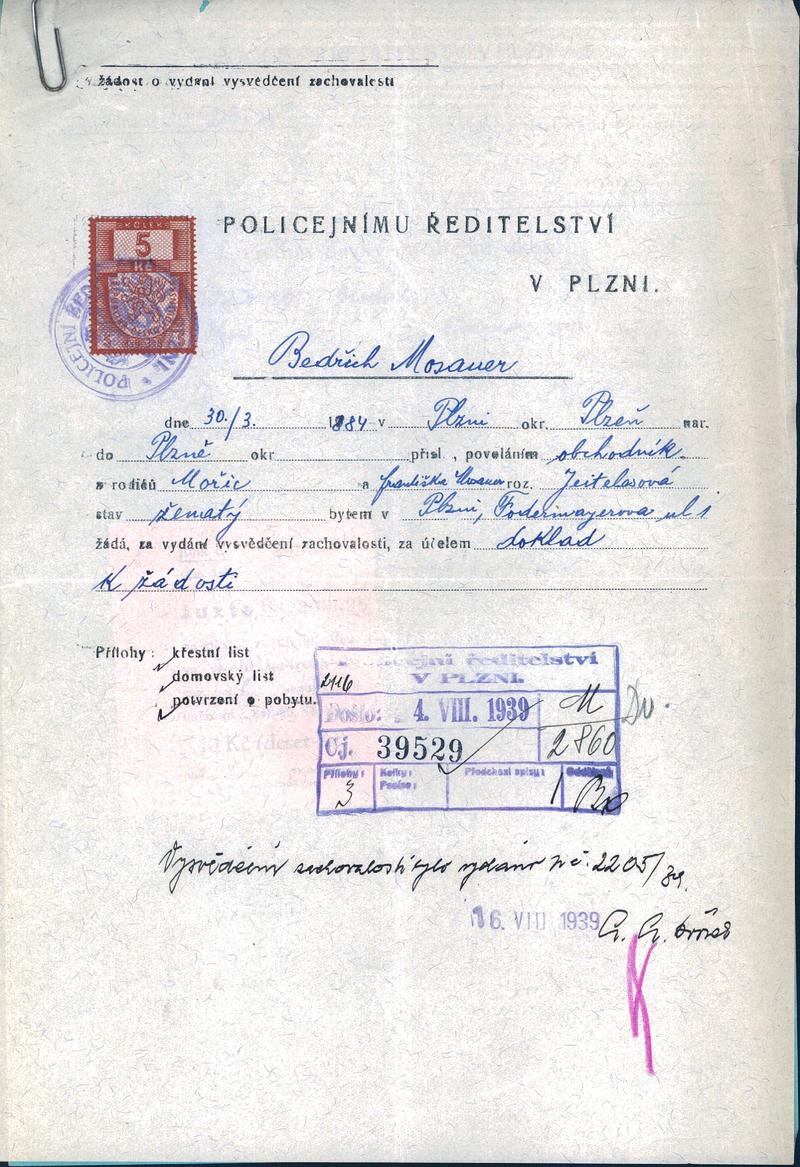 žádost o vydaní vysvědčení zachovalosti
KOLEK
5
Kč
POLICEJNÍ ŘED
POLICEJNÍMU ŘEDITELSTVÍ
V PLZNI.
Bedřich Mosauer
dne 30./3. 1884 v Plzni okr. Plzeň nar.
do Plzně okr přísl , povoláním obchodník
z rodičů Mořic a Františka Mosauer roz. Jeitelesová
stav ženatý bytem v Plzni, Fodermayerova ul 1
žádá, za vydání vysvědčení zachovalosti, za účelem doklad
K žádosti
Přílohy : křestní list
domovský list
potvrzení o pobytu.
Policejní ředitelství
V PLZNI.
Došlo: 4. VIII. 1939 M
Čj. 39529 2860
Přílohy : Kolky : Předchozí spisy : Oddělení
3
Vysvědčení zachovalosti bylo vydáno pod č. 2205/39.
16. VIII 1939